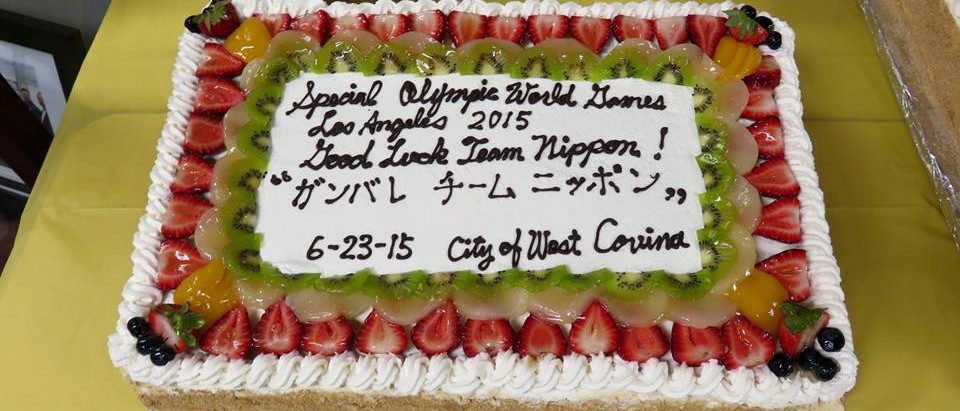 Special Olympic World Games
Los Angeles 2015
Good Luck Team Nippon !
“ガンバレ チーム ニッポン„
6-23-15 City of West Covina